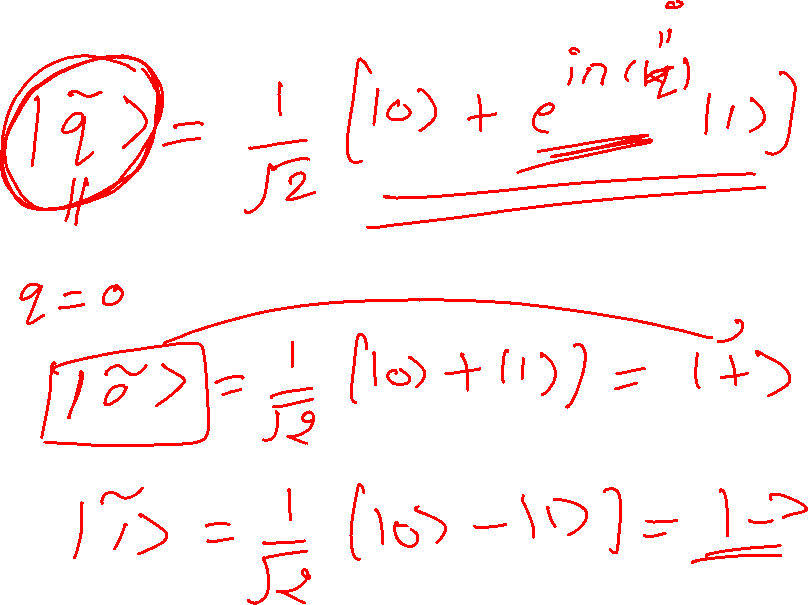 |q̃⟩ = 1/√2 [|0⟩ + e^{iπ(q)} |1⟩]
q = 0
|0̃⟩ = 1/√2 [|0⟩ + |1⟩] = |+⟩
|1̃⟩ = 1/√2 [|0⟩ - |1⟩] = |-⟩